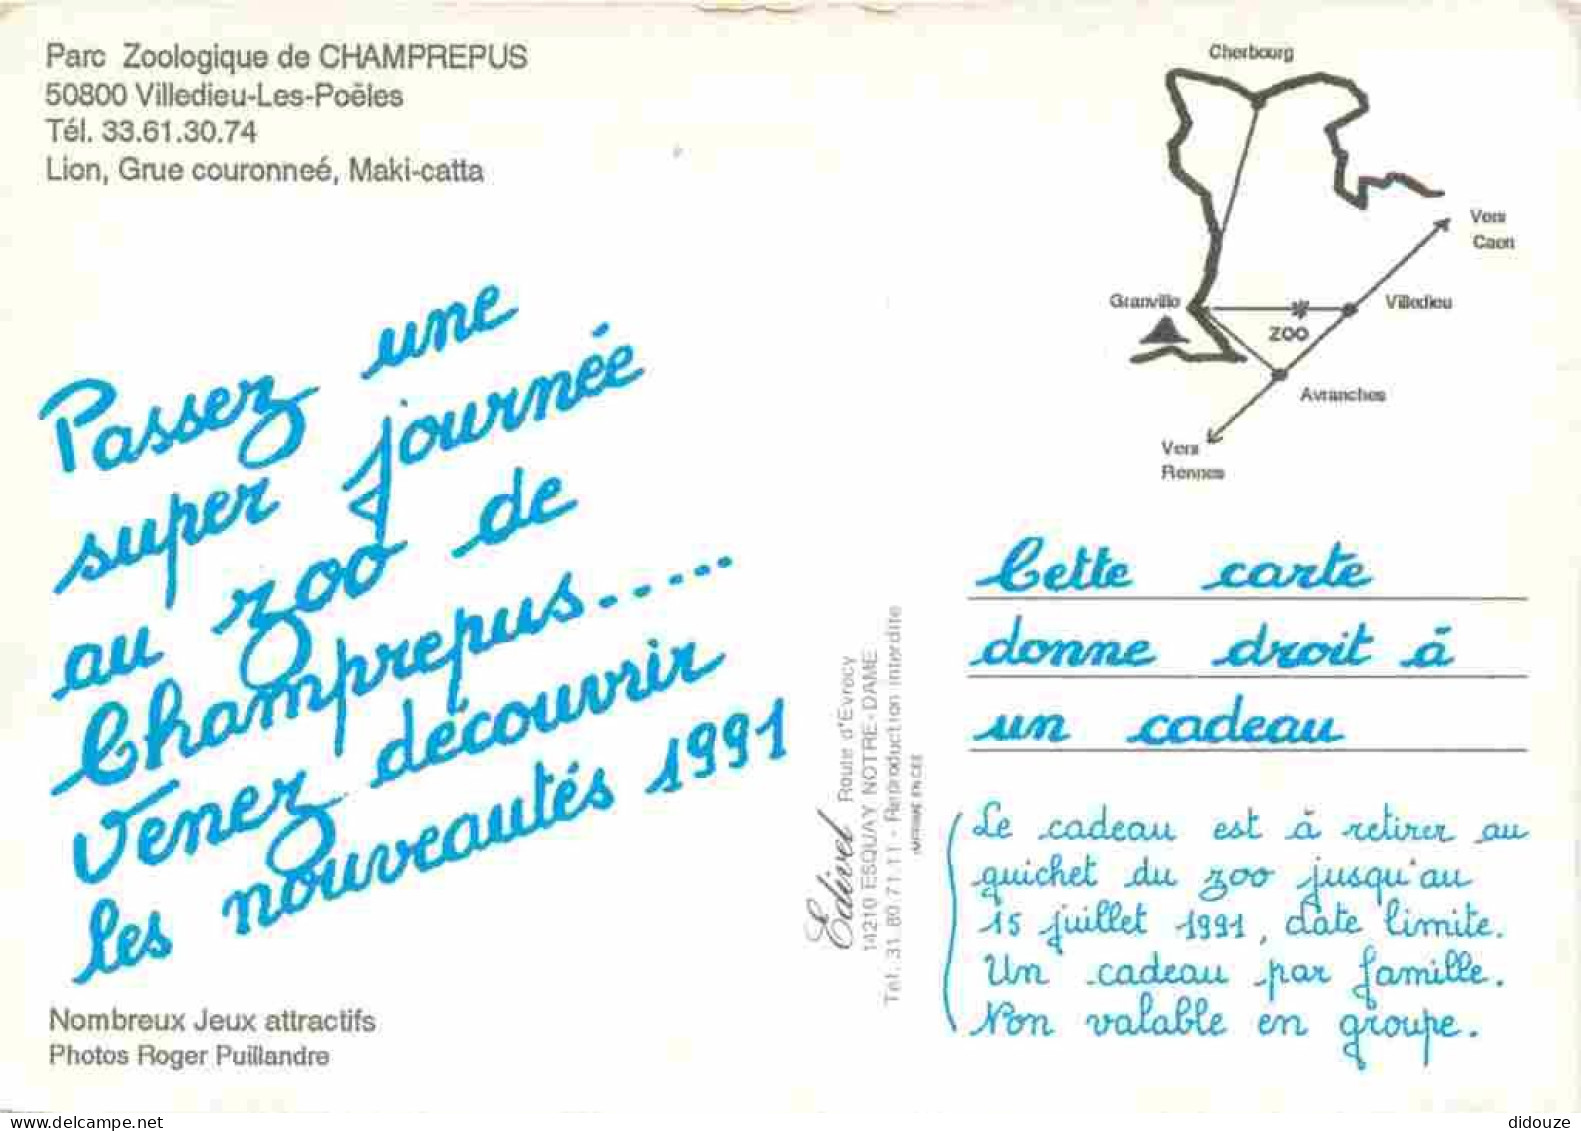 Parc Zoologique de CHAMPREPUS
50800 Villedieu-Les-Poëles
Tél. 33.61.30.74
Lion, Grue couronneé, Maki-catta
Passez une
super journée
au zoo de
Champrepus.....
Venez découvrir
les nouveautés 1991
Nombreux Jeux attractifs
Photos Roger Puillandre
Edivel Route d'Evrecy
14210 ESQUAY NOTRE-DAME
Tél. 31.80.71.11 - Reproduction interdite
IMPRIMÉ EN CEE
Cherbourg
Vers
Caen
Granville
Villedieu
ZOO
Avranches
Vers
Rennes
Cette carte
donne droit à
un cadeau
Le cadeau est à retirer au
guichet du zoo jusqu'au
15 juillet 1991, date limite.
Un cadeau par famille.
Non valable en groupe.
didouze